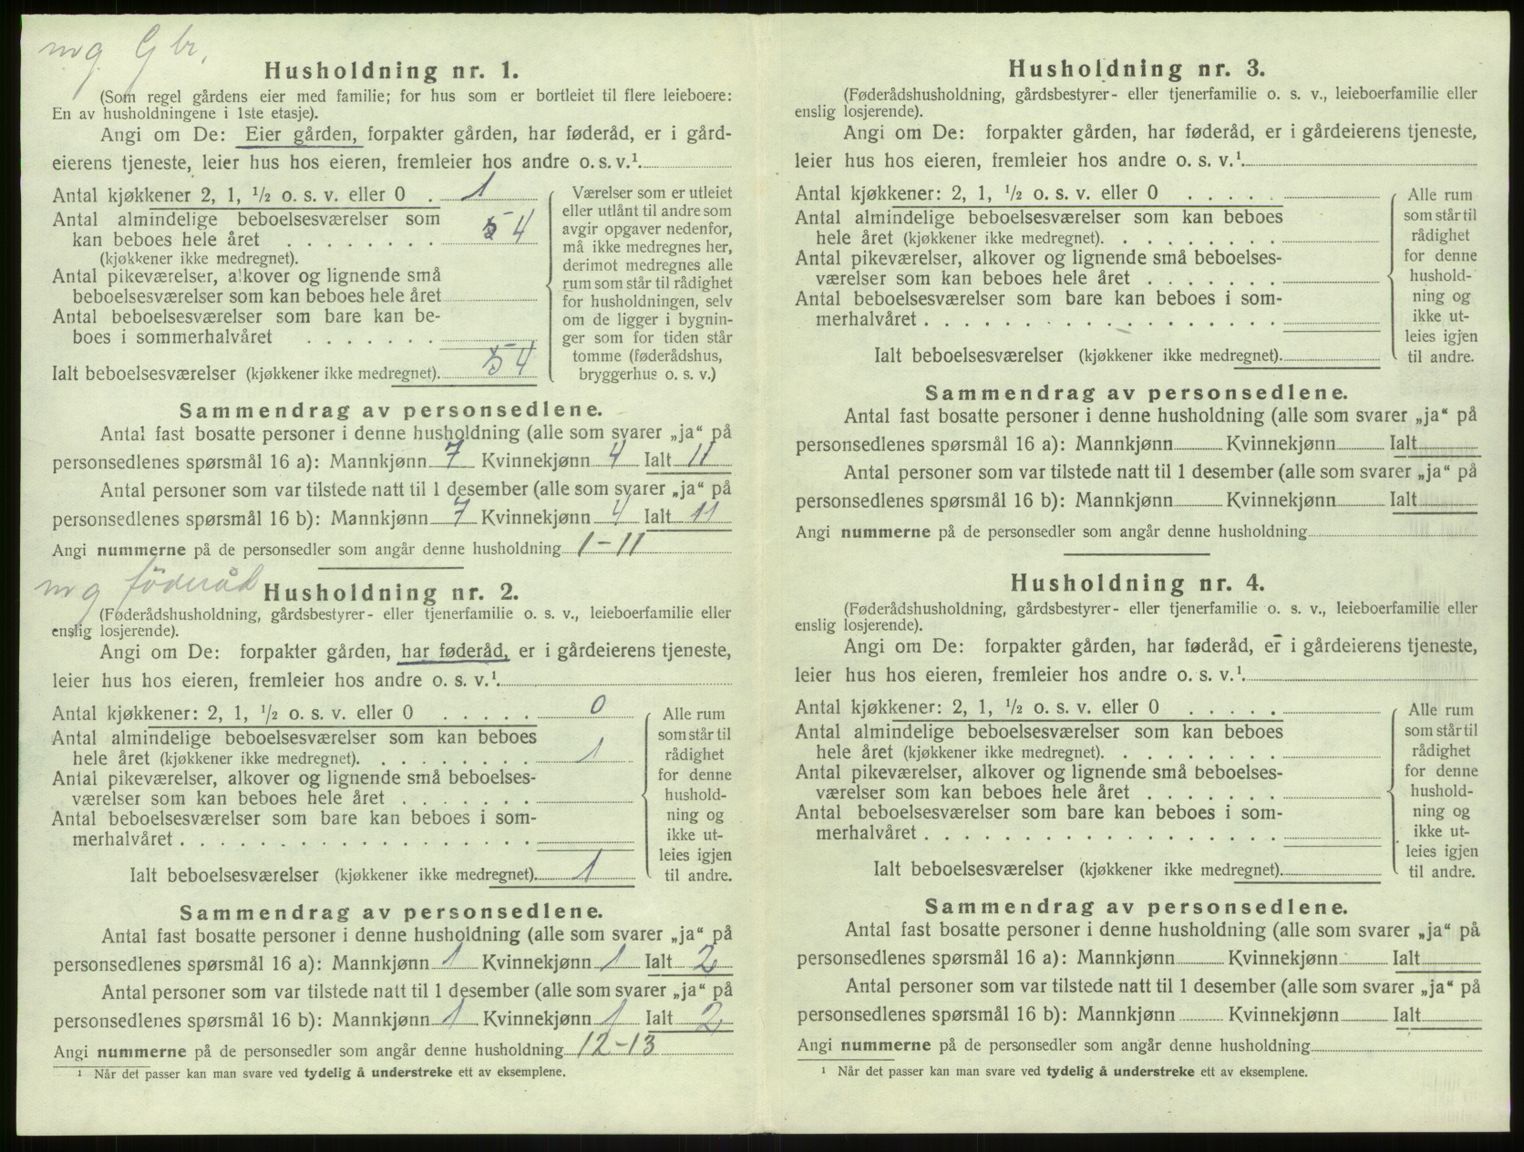 m g G br.
Husholdning nr. 1.
(Som regel gårdens eier med familie; for hus som er bortleiet til flere leieboere:
En av husholdningene i 1ste etasje).
Angi om De: Eier gården, forpakter gården, har føderåd, er i gård-
eierens tjeneste, leier hus hos eieren, fremleier hos andre o. s. v.¹
Antal kjøkkener 2, 1, ½ o. s. v. eller 0 . 1
Antal almindelige beboelsesværelser som
kan beboes hele året . . . . . . . . 5 4
(kjøkkener ikke medregnet).
Antal pikeværelser, alkover og lignende små
beboelsesværelser som kan beboes hele året
Antal beboelsesværelser som bare kan be-
boes i sommerhalvåret . . . . . . .
Ialt beboelsesværelser (kjøkkener ikke medregnet). 5 4
Værelser som er utleiet
eller utlånt til andre som
avgir opgaver nedenfor,
må ikke medregnes her,
derimot medregnes alle
rum som står til rådighet
for husholdningen, selv
om de ligger i bygnin-
ger som for tiden står
tomme (føderådshus,
bryggerhus o. s. v.)
Sammendrag av personsedlene.
Antal fast bosatte personer i denne husholdning (alle som svarer „ja“ på
personsedlenes spørsmål 16 a): Mannkjønn 7 Kvinnekjønn 4 Ialt 11
Antal personer som var tilstede natt til 1 desember (alle som svarer „ja“ på
personsedlenes spørsmål 16 b): Mannkjønn 7 Kvinnekjønn 4 Ialt 11
Angi nummerne på de personsedler som angår denne husholdning 1-11
m g föderåd
Husholdning nr. 2.
(Føderådshusholdning, gårdsbestyrer- eller tjenerfamilie o. s. v., leieboerfamilie eller
enslig losjerende).
Angi om De: forpakter gården, har føderåd, er i gårdeierens tjeneste,
leier hus hos eieren, fremleier hos andre o. s. v.¹
Antal kjøkkener: 2, 1, ½ o. s. v. eller 0 . . . . . 0
Antal almindelige beboelsesværelser som kan beboes
hele året (kjøkkener ikke medregnet). . . . . . . . 1
Antal pikeværelser, alkover og lignende små beboelses-
værelser som kan beboes hele året . . . . . . .
Antal beboelsesværelser som bare kan beboes i som-
merhalvåret . . . . . . . . . . . . . . . . . .
Ialt beboelsesværelser (kjøkkener ikke medregnet). 1
Alle rum
som står til
rådighet
for denne
hushold-
ning og
ikke ut-
leies igjen
til andre.
Sammendrag av personsedlene.
Antal fast bosatte personer i denne husholdning (alle som svarer „ja“ på
personsedlenes spørsmål 16 a): Mannkjønn 1 Kvinnekjønn 1 Ialt 2
Antal personer som var tilstede natt til 1 desember (alle som svarer „ja“ på
personsedlenes spørsmål 16 b): Mannkjønn 1 Kvinnekjønn 1 Ialt 2
Angi nummerne på de personsedler som angår denne husholdning 12-13
¹ Når det passer kan man svare ved tydelig å understreke ett av eksemplene.
Husholdning nr. 3.
(Føderådshusholdning, gårdsbestyrer- eller tjenerfamilie o. s. v., leieboerfamilie eller
enslig losjerende).
Angi om De: forpakter gården, har føderåd, er i gårdeierens tjeneste,
leier hus hos eieren, fremleier hos andre o. s. v.¹
Antal kjøkkener: 2, 1, ½ o. s. v. eller 0 . . . . .
Antal almindelige beboelsesværelser som kan beboes
hele året (kjøkkener ikke medregnet). . . . . . . .
Antal pikeværelser, alkover og lignende små beboelses-
værelser som kan beboes hele året . . . . . . .
Antal beboelsesværelser som bare kan beboes i som-
merhalvåret . . . . . . . . . . . . . . . . . .
Ialt beboelsesværelser (kjøkkener ikke medregnet).
Alle rum
som står til
rådighet
for denne
hushold-
ning og
ikke ut-
leies igjen
til andre.
Sammendrag av personsedlene.
Antal fast bosatte personer i denne husholdning (alle som svarer „ja“ på
personsedlenes spørsmål 16 a): Mannkjønn Kvinnekjønn Ialt
Antal personer som var tilstede natt til 1 desember (alle som svarer „ja“ på
personsedlenes spørsmål 16 b): Mannkjønn Kvinnekjønn Ialt
Angi nummerne på de personsedler som angår denne husholdning
Husholdning nr. 4.
(Føderådshusholdning, gårdsbestyrer- eller tjenerfamilie o. s. v., leieboerfamilie eller
enslig losjerende).
Angi om De: forpakter gården, har føderåd, er i gårdeierens tjeneste,
leier hus hos eieren, fremleier hos andre o. s. v.¹
Antal kjøkkener: 2, 1, ½ o. s. v. eller 0 . . . . .
Antal almindelige beboelsesværelser som kan beboes
hele året (kjøkkener ikke medregnet). . . . . . . .
Antal pikeværelser, alkover og lignende små beboelses-
værelser som kan beboes hele året . . . . . . .
Antal beboelsesværelser som bare kan beboes i som-
merhalvåret . . . . . . . . . . . . . . . . . .
Ialt beboelsesværelser (kjøkkener ikke medregnet).
Alle rum
som står til
rådighet
for denne
hushold-
ning og
ikke ut-
leies igjen
til andre.
Sammendrag av personsedlene.
Antal fast bosatte personer i denne husholdning (alle som svarer „ja“ på
personsedlenes spørsmål 16 a): Mannkjønn Kvinnekjønn Ialt
Antal personer som var tilstede natt til 1 desember (alle som svarer „ja“ på
personsedlenes spørsmål 16 b): Mannkjønn Kvinnekjønn Ialt
Angi nummerne på de personsedler som angår denne husholdning
¹ Når det passer kan man svare ved tydelig å understreke ett av eksemplene.